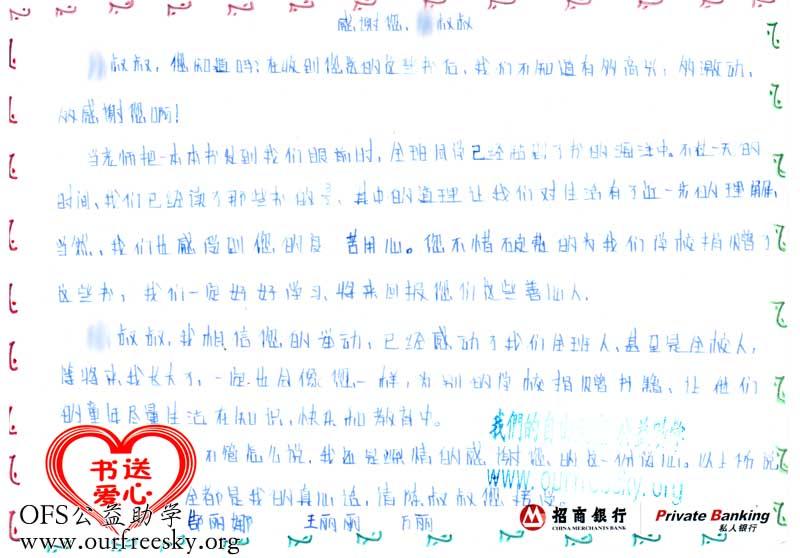 感谢您,叔叔
叔叔,您知道吗?在收到您送的这些书后,我们不知道有多高兴,多激动,
多感谢您啊!
当老师把一本本书发到我们眼前时,全班同学已经陷到了书的海洋中。不过一天的
时间,我们已经读了那些书的,其中的道理让我们对生活有了进一步的理解,
当然,我们也感受到您的良苦用心。您不惜破费的为我们学校捐赠了
这些书,我们一定好好学习,将来回报您们这些善心人.
叔叔,我相信您的举动,已经感动了我们全班人,甚至是全校人,
等将来我长大了,一定也会像您一样,为别的学校捐赠书籍,让他们
的童年尽量生活在知识,快乐和教育中。
我們的自由天空
不管怎么说,我还是深情的感谢您的这一份心.以上所说
www.ourfreesky.org
全都是我的真心话,请叔叔您接受。
书送
爱心
OFS公益助学
www.ourfreesky.org
丽娜 王丽丽 万丽
招商银行
CHINA MERCHANTS BANK
Private Banking
私人银行